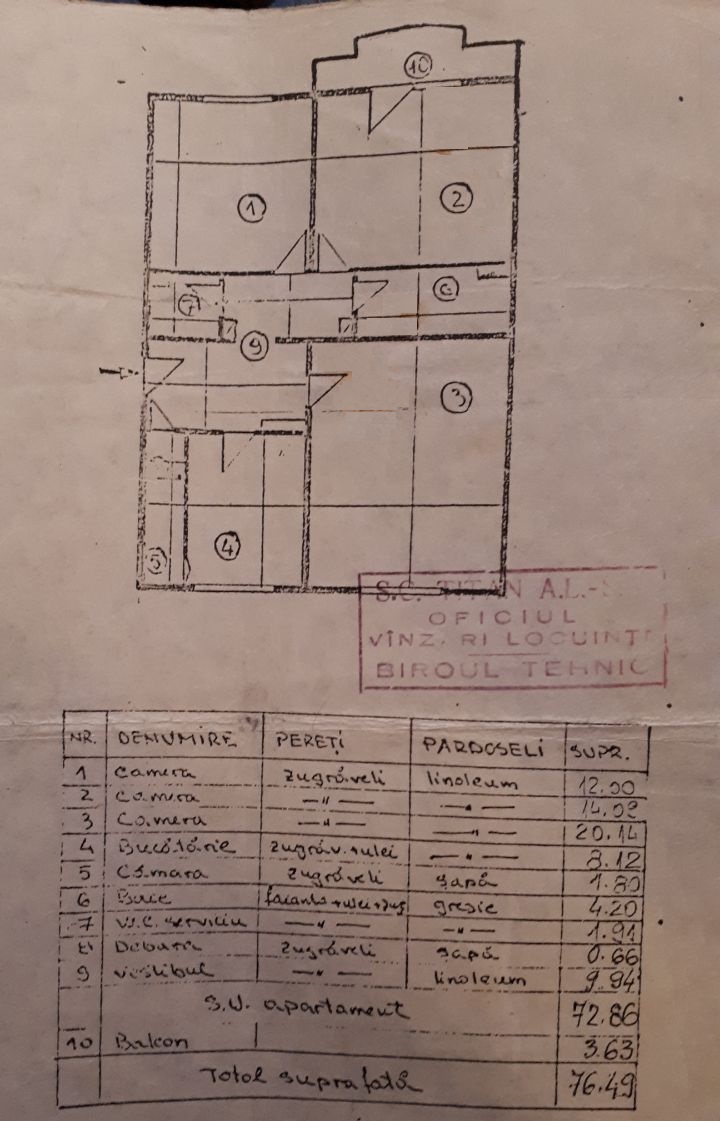 10
1
2
7
6
9
3
5
4
S.C. TITAN A.L.
OFICIUL
VÎNZ. RI LOCUINT
BIROUL TEHNIC
NR. DENUMIRE PEREȚI PARDOSELI SUPR.
1 Camera zugrăveli linoleum 12.00
2 Camera —"— —"— 14.09
3 Camera —"— —"— 20.14
4 Bucătărie zugrăv.+ulei —"— 8.12
5 Cămara zugrăveli șapă 1.80
6 Baie faianță+ulei+zug gresie 4.20
7 W.C. serviciu —"— —"— 1.91
8 Debara zugrăveli șapă 0.66
9 Vestibul —"— linoleum 9.94
S.U. apartament 72.86
10 Balcon 3.63
Total suprafață 76.49